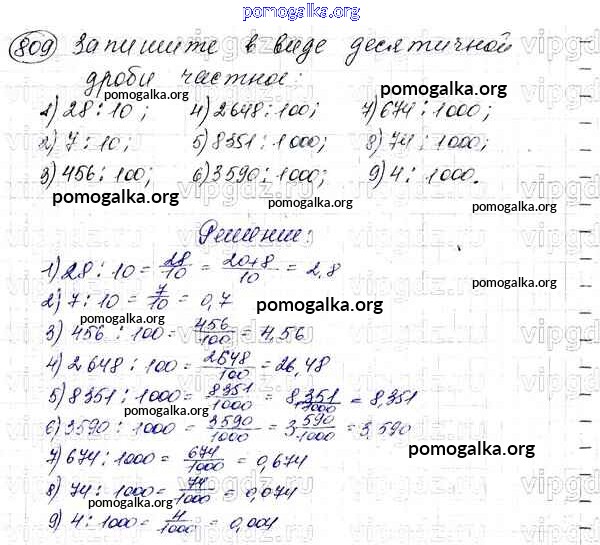 pomogalka.org
809 Запишите в виде десятичной
дроби частное:
pomogalka.org
1) 28 : 10; 4) 2648 : 100; 7) 674 : 1000;
2) 7 : 10; 5) 8351 : 1000; 8) 74 : 1000;
3) 456 : 100; 6) 3590 : 1000; 9) 4 : 1000.
pomogalka.org
Решение:
1) 28 : 10 = 28/10 = 20+8/10 = 2,8
2) 7 : 10 = 7/10 = 0,7
pomogalka.org
3) 456 : 100 = 456/100 = 4,56
4) 2648 : 100 = 2648/100 = 26,48
5) 8351 : 1000 = 8351/1000 = 8 351/1000 = 8,351
pomogalka.org
6) 3590 : 1000 = 3590/1000 = 3 590/1000 = 3,590
pomogalka.org
7) 674 : 1000 = 674/1000 = 0,674
8) 74 : 1000 = 74/1000 = 0,074
9) 4 : 1000 = 4/1000 = 0,004
pomogalka.org
vipgdz.ru